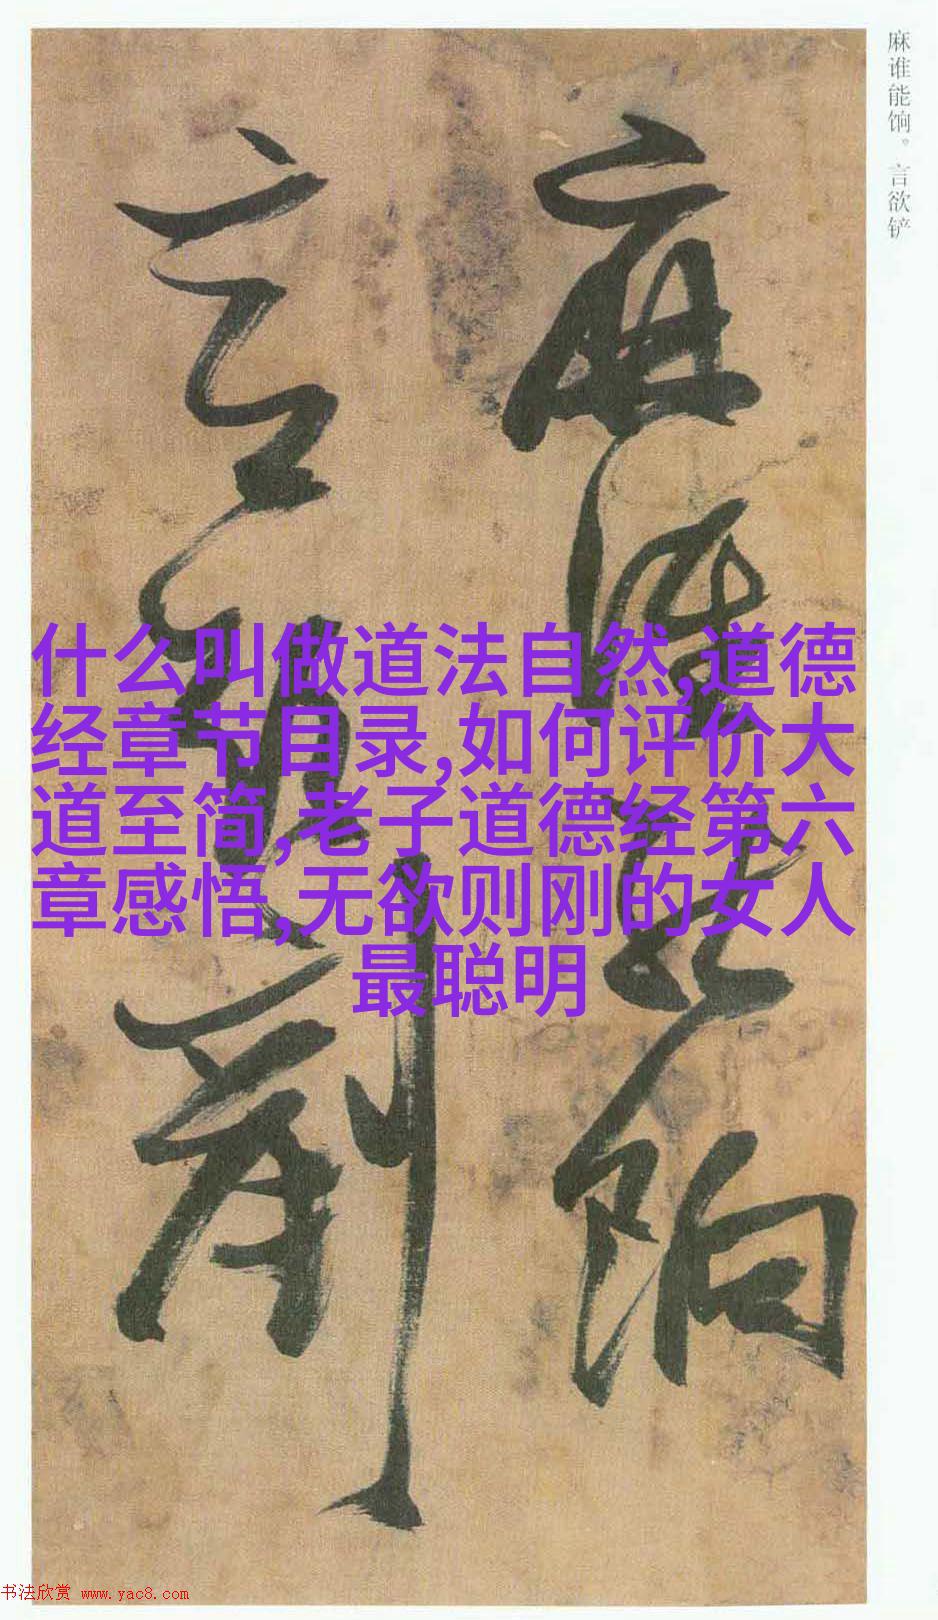 麻谁能饷。言欲铲
麻谁能饷
言欲剷
什么叫做道法自然,道德
经章节目录,如何评价大
道至简,老子道德经第六
章感悟,无欲则刚的女人
最聪明
书法欣赏 www.yac8.com